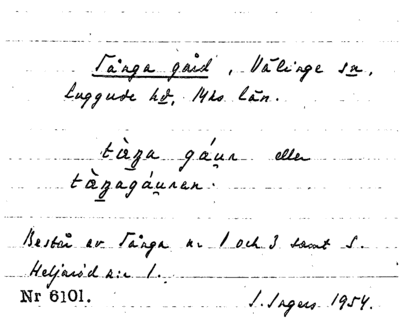 Tånga gård, Välinge sn,
Luggude hd, Mhs län.
tàŋa gáu̯r eller
tàŋagáu̯ren.
Består av Tånga nr 1 och 3 samt S.
Heljaröd n:r 1.
Nr 6101. I. Ingers 1954.